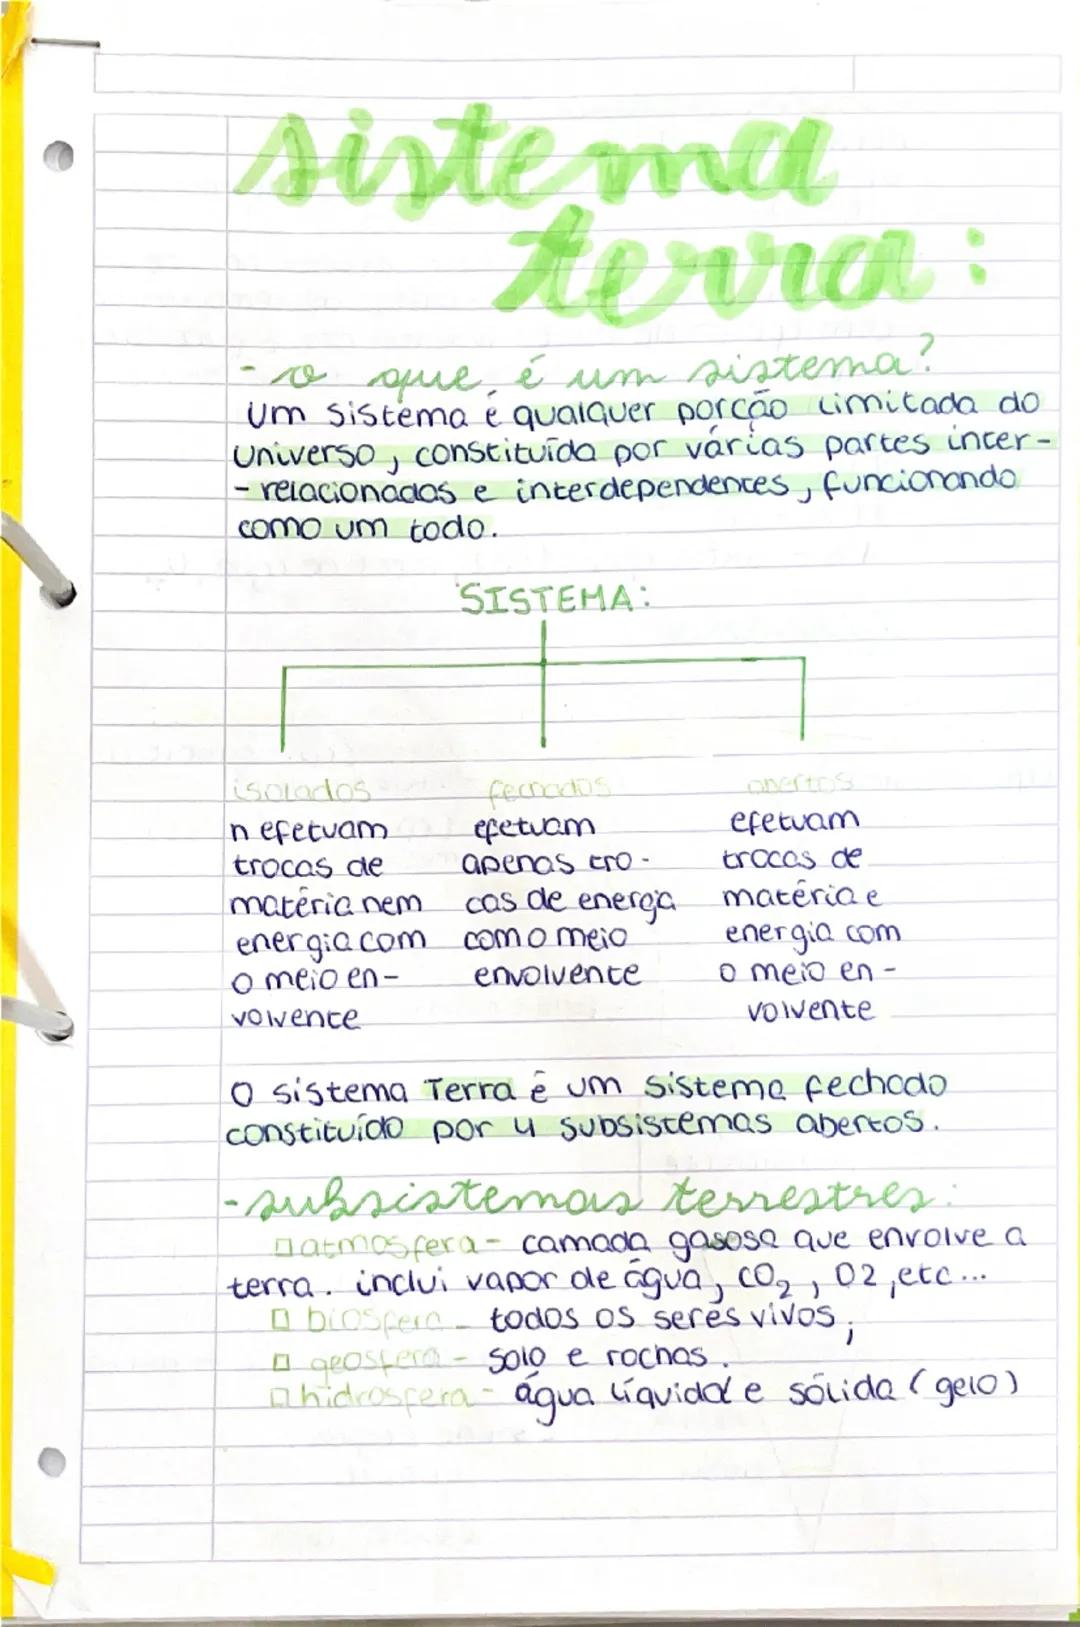 sistema
terra:
- o que é um sistema?
Um sistema é qualquer porção limitada do
Universo, constituída por várias partes inter-
- relacionadas e interdependentes, funcionando
como um todo.
SISTEMA:
isolados
n efetuam
trocas de
matéria nem
energia com
o meio en-
volvente
fechados
efetuam
apenas tro-
cas de energia
com o meio
envolvente
abertos
efetuam
trocas de
matéria e
energia com
o meio en-
volvente
O sistema Terra é um sistema fechado
constituído por 4 subsistemas abertos.
- subsistemas terrestres:
□ atmosfera - camada gasosa que envolve a
terra. inclui vapor de água, CO₂, O2, etc...
□ biosfera - todos os seres vivos;
□ geosfera - solo e rochas.
□ hidrosfera - água líquida e sólida (gelo)